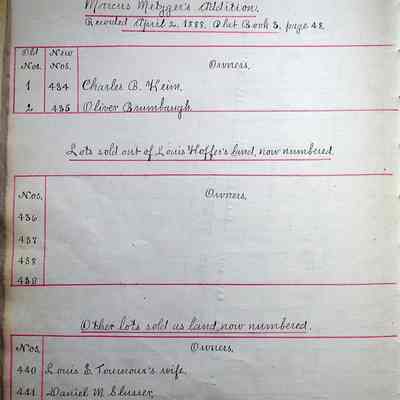 Marcus Metzger's Addition.
Recorded April 2, 1888. Plat Book 3, page 48.
Old Nos. New Nos. Owners.
1 434 Charles B. Keim.
2 435 Oliver Brumbaugh.
Lots sold out of Louis Hoffer's land, now numbered
Nos. Owners.
436
437
438
439
Other lots sold as land, now numbered.
Nos. Owners.
440 Louis E. Tournoux's wife.
441 Daniel M. Slusser.